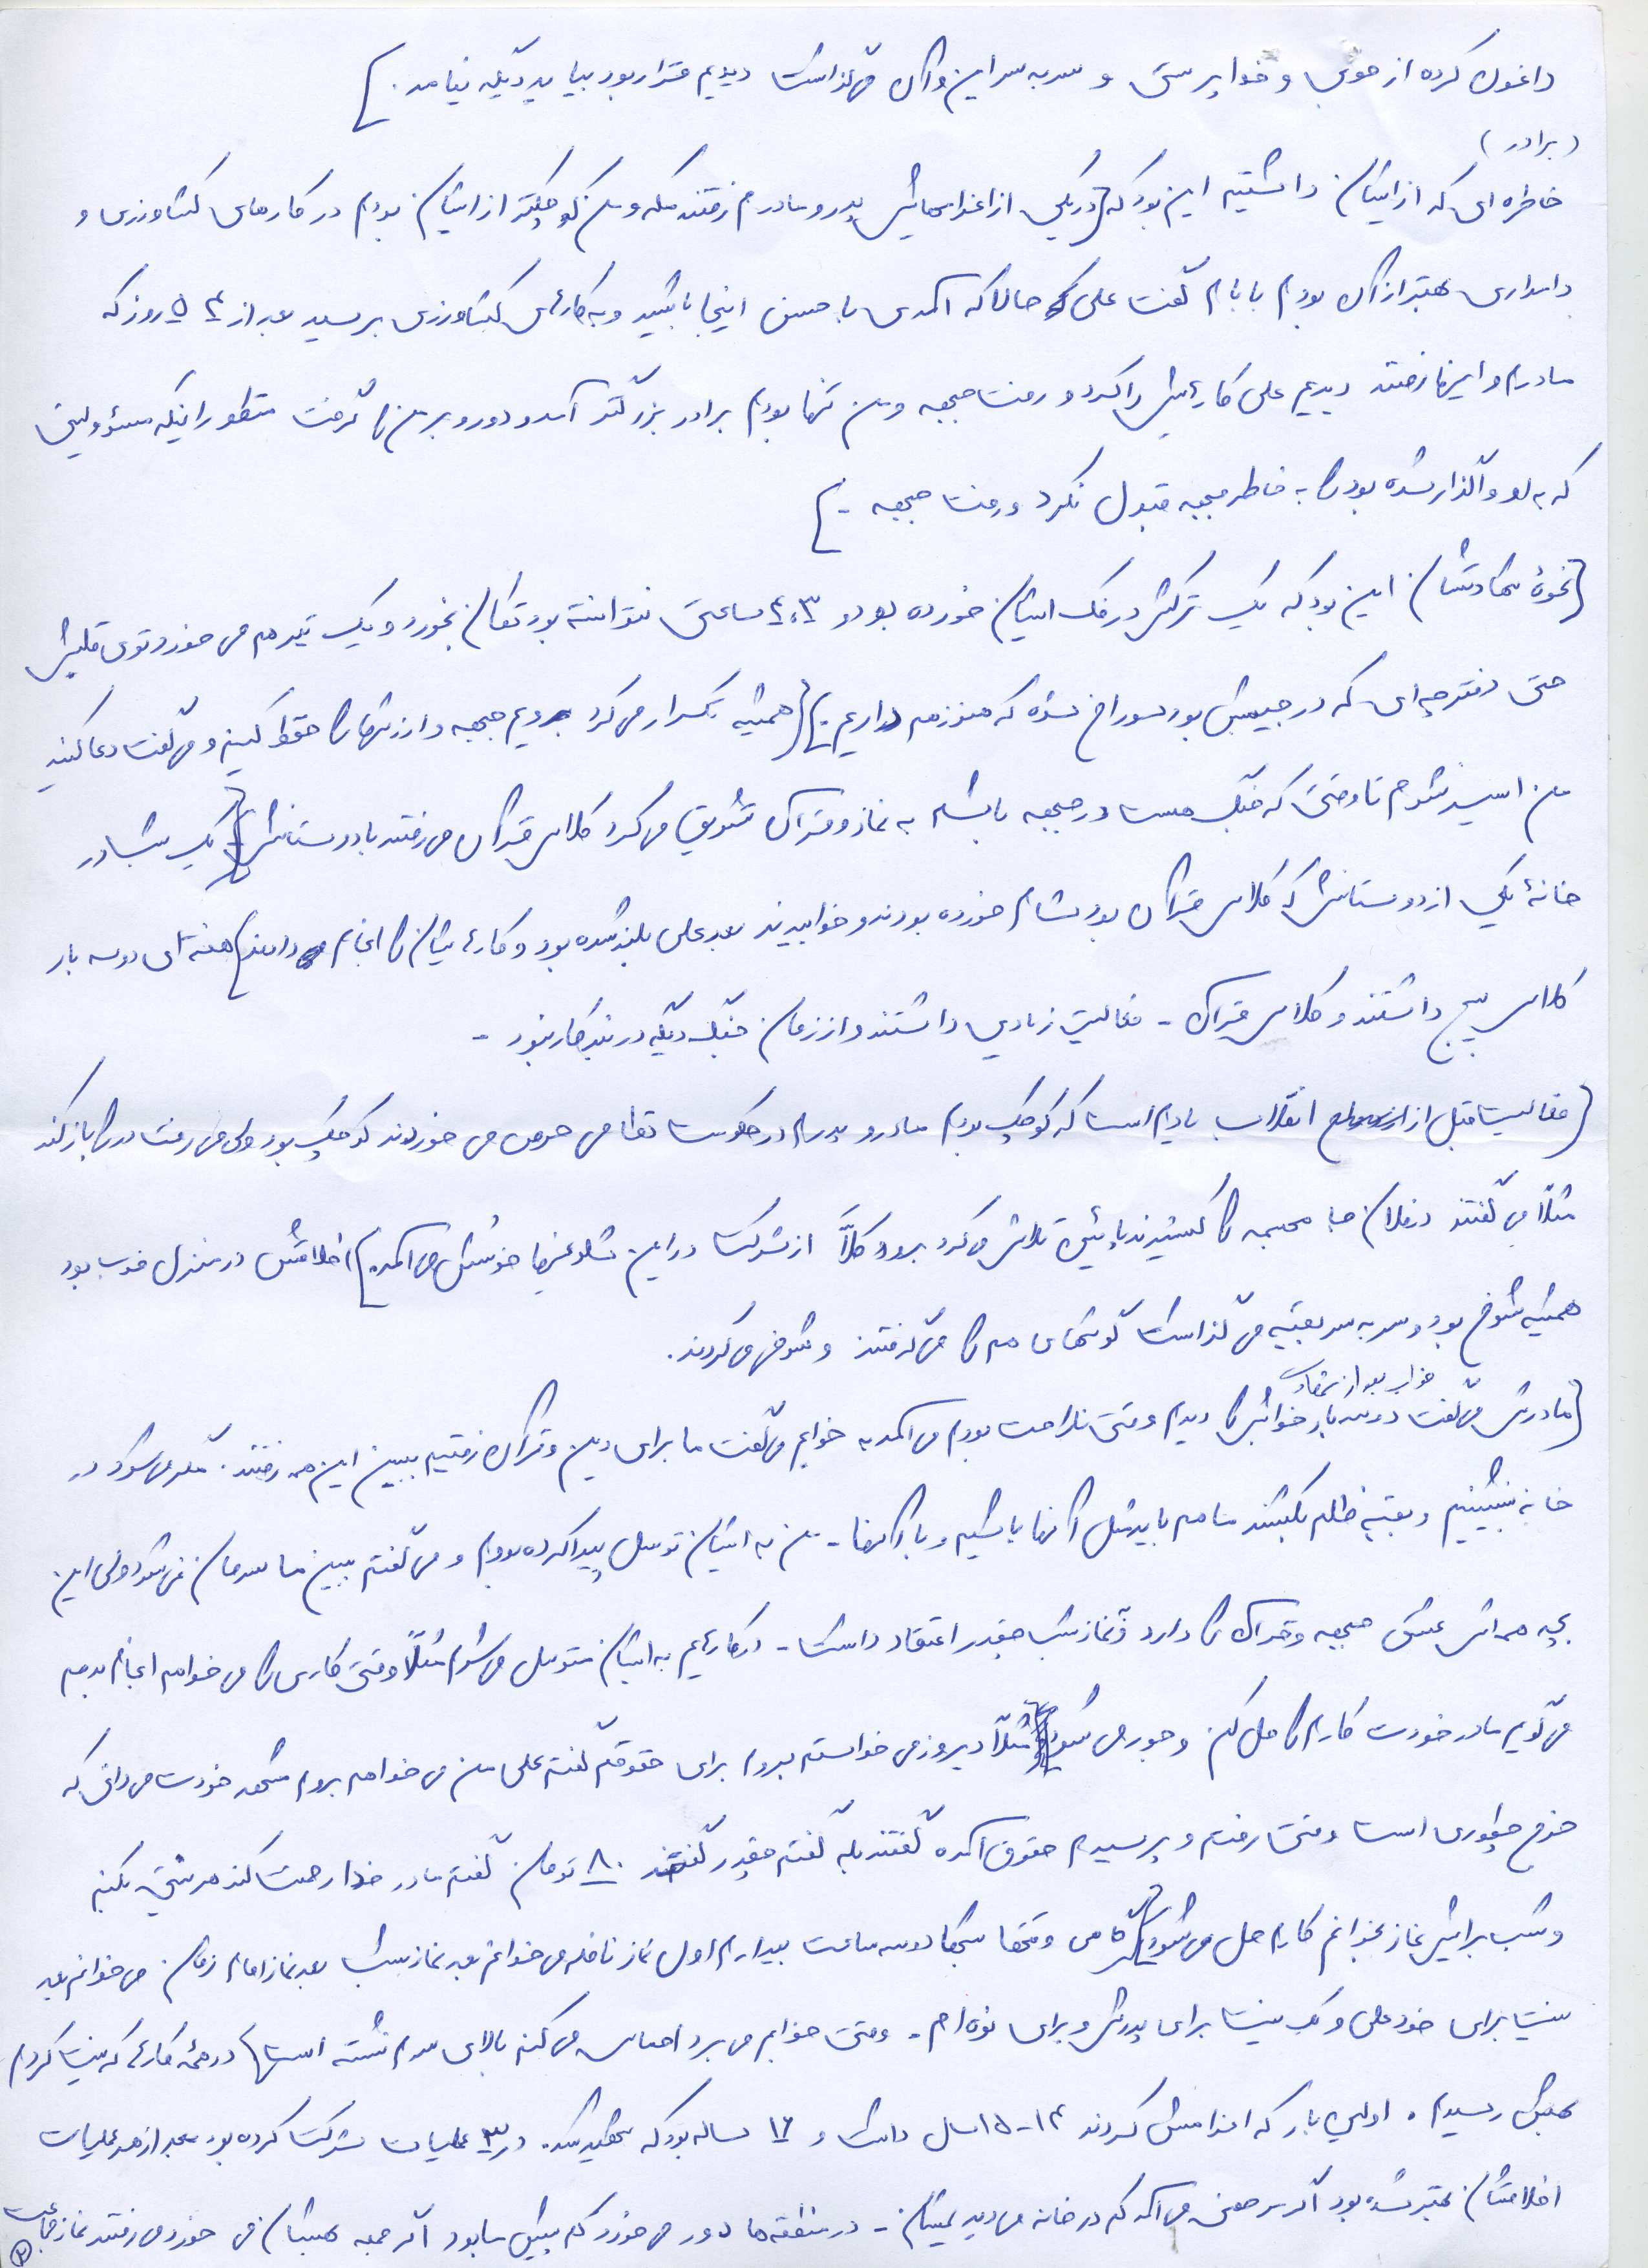 داغون کرده از خوبی و خداپرستی و سر به سر این و آن می‌گذاشت دیدیم قرار بود بیاید دیگه نیامد.]
(برادر)
خاطره‌ای که از ایشان داشتیم این بود که [در یکی از اعزامهایش پدر و مادرم رفتند مکه و من کوچکتر از ایشان بودم در کارهای کشاورزی و
دامداری بهتر از آن بودم بابام گفت علی حالا که آمدی با حسن اینجا باشید و به کارهای کشاورزی برسید بعد از ۴ ۵ روز که
مادرم و اینها رفتند دیدیم علی کارهایش را کرد و رفت جبهه و من تنها بودم برادر بزرگتر آمد و دور و بر من را گرفت منظور اینکه مسئولیتی
که به او واگذار شده بود را به خاطر جبهه قبول نکرد و رفت جبهه -]
[نحوهٔ شهادتشان این بود که یک ترکش در فک ایشان خورده بود و ۳، ۴ ساعتی نتوانسته بود تکان بخورد و یک تیر هم می خورد توی قلبش
حتی دفترچه‌ای که در جیبش بود سوراخ شده که هنوز هم داریم.] [همیشه تکرار می کرد برویم جبهه و ارزشها را حفظ کنیم و می‌گفت دعا کنید
من اسیر نشوم تا وقتی که جنگ هست در جبهه باشم به نماز و قرآن تشویق می کرد کلاس قرآن می رفتند با دوستانش] یک شب در
خانهٔ یکی از دوستانش که کلاس قرآن بود شام خورده بودند و خوابیدند بعد علی بلند شده بود و کارهایشان را انجام دادند] هفته‌ای دو سه بار
کلاس بسیج داشتند و کلاس قرآن - فعالیت زیادی داشتند و از زمان جنگ دیگه در بند کار نبود -
[فعالیت قبل از انقلاب یادم است که کوچک بودم مادر و پدرم در حکومت نظامی حرص می خوردند کوچک بود ولی می رفت در را باز کند
مثلاً می گفتند در فلان جا مجسمه را کشیدند پایین تلاش می کرد برود کلاً از شرکت در این شلوغیها خوشش می آمد.] اخلاقش در منزل خوب بود
همیشه شوخ بود و سر به سر بقیه می گذاشت گوشهای هم را می گرفتند و شوخی می کردند.
خواب بعد از شهادت
[مادرش می گفت دو سه بار خوابش را دیدم وقتی ناراحت بودم می آمد به خوابم می گفت ما برای دین و قرآن رفتیم ببین این همه رفتند. مگر می شود در
خانه بنشینیم و بقیه ظلم بکشند ما هم باید مثل آنها باشیم و با آنها - من به ایشان توسل پیدا کرده بودم و می گفتم ببین ما سرمان نمی شود ولی این
بچه همه‌اش عشق جبهه و قرآن را دارد و نماز شب چقدر اعتقاد داشت - در کارهایم به ایشان متوسل می شوم مثلاً وقتی کاری را می خواهم انجام بدهم
می گویم مادر خودت کارم را حل کن و جور می شود مثلاً دیروز می خواستم بروم برای حقوقم گفتم علی من می خواهم بروم مشهد خودت می دانی که
خرج چطوری است وقتی رفتم و پرسیدم حقوق آمده گفتند بله گفتم چقدر گفتند ۸۰ تومان گفتم مادر خدا رحمت کند هر نیتی بکنم
و شب برایش نماز بخوانم کارم حل می شود] گاهی وقتها شبها دو سه ساعت بیدارم اول نماز نافله می خوانم بعد نماز شب بعد نماز امام زمان می خوانم بعد
نیت برای خود علی و یک نیت برای پدرش و برای نوه‌ام - وقتی خوابم می برد احساس می کنم بالای سرم نشسته است] در همهٔ کارهایی که نیت کردم
بهش رسیدم. اولین بار که اعزامش کردند ۱۴-۱۵ سال داشت و ۱۷ ساله بود که شهید شد. در ۳ عملیات شرکت کرده بود بعد از هر عملیات
اخلاقشان بهتر شده بود اگر مرخصی می آمد کم در خانه می دیدیمشان - در منطقه‌ها دور می خورد کم پیش ما بود اگر جمعه بهشان می خورد می رفتند نماز جماعت
۲